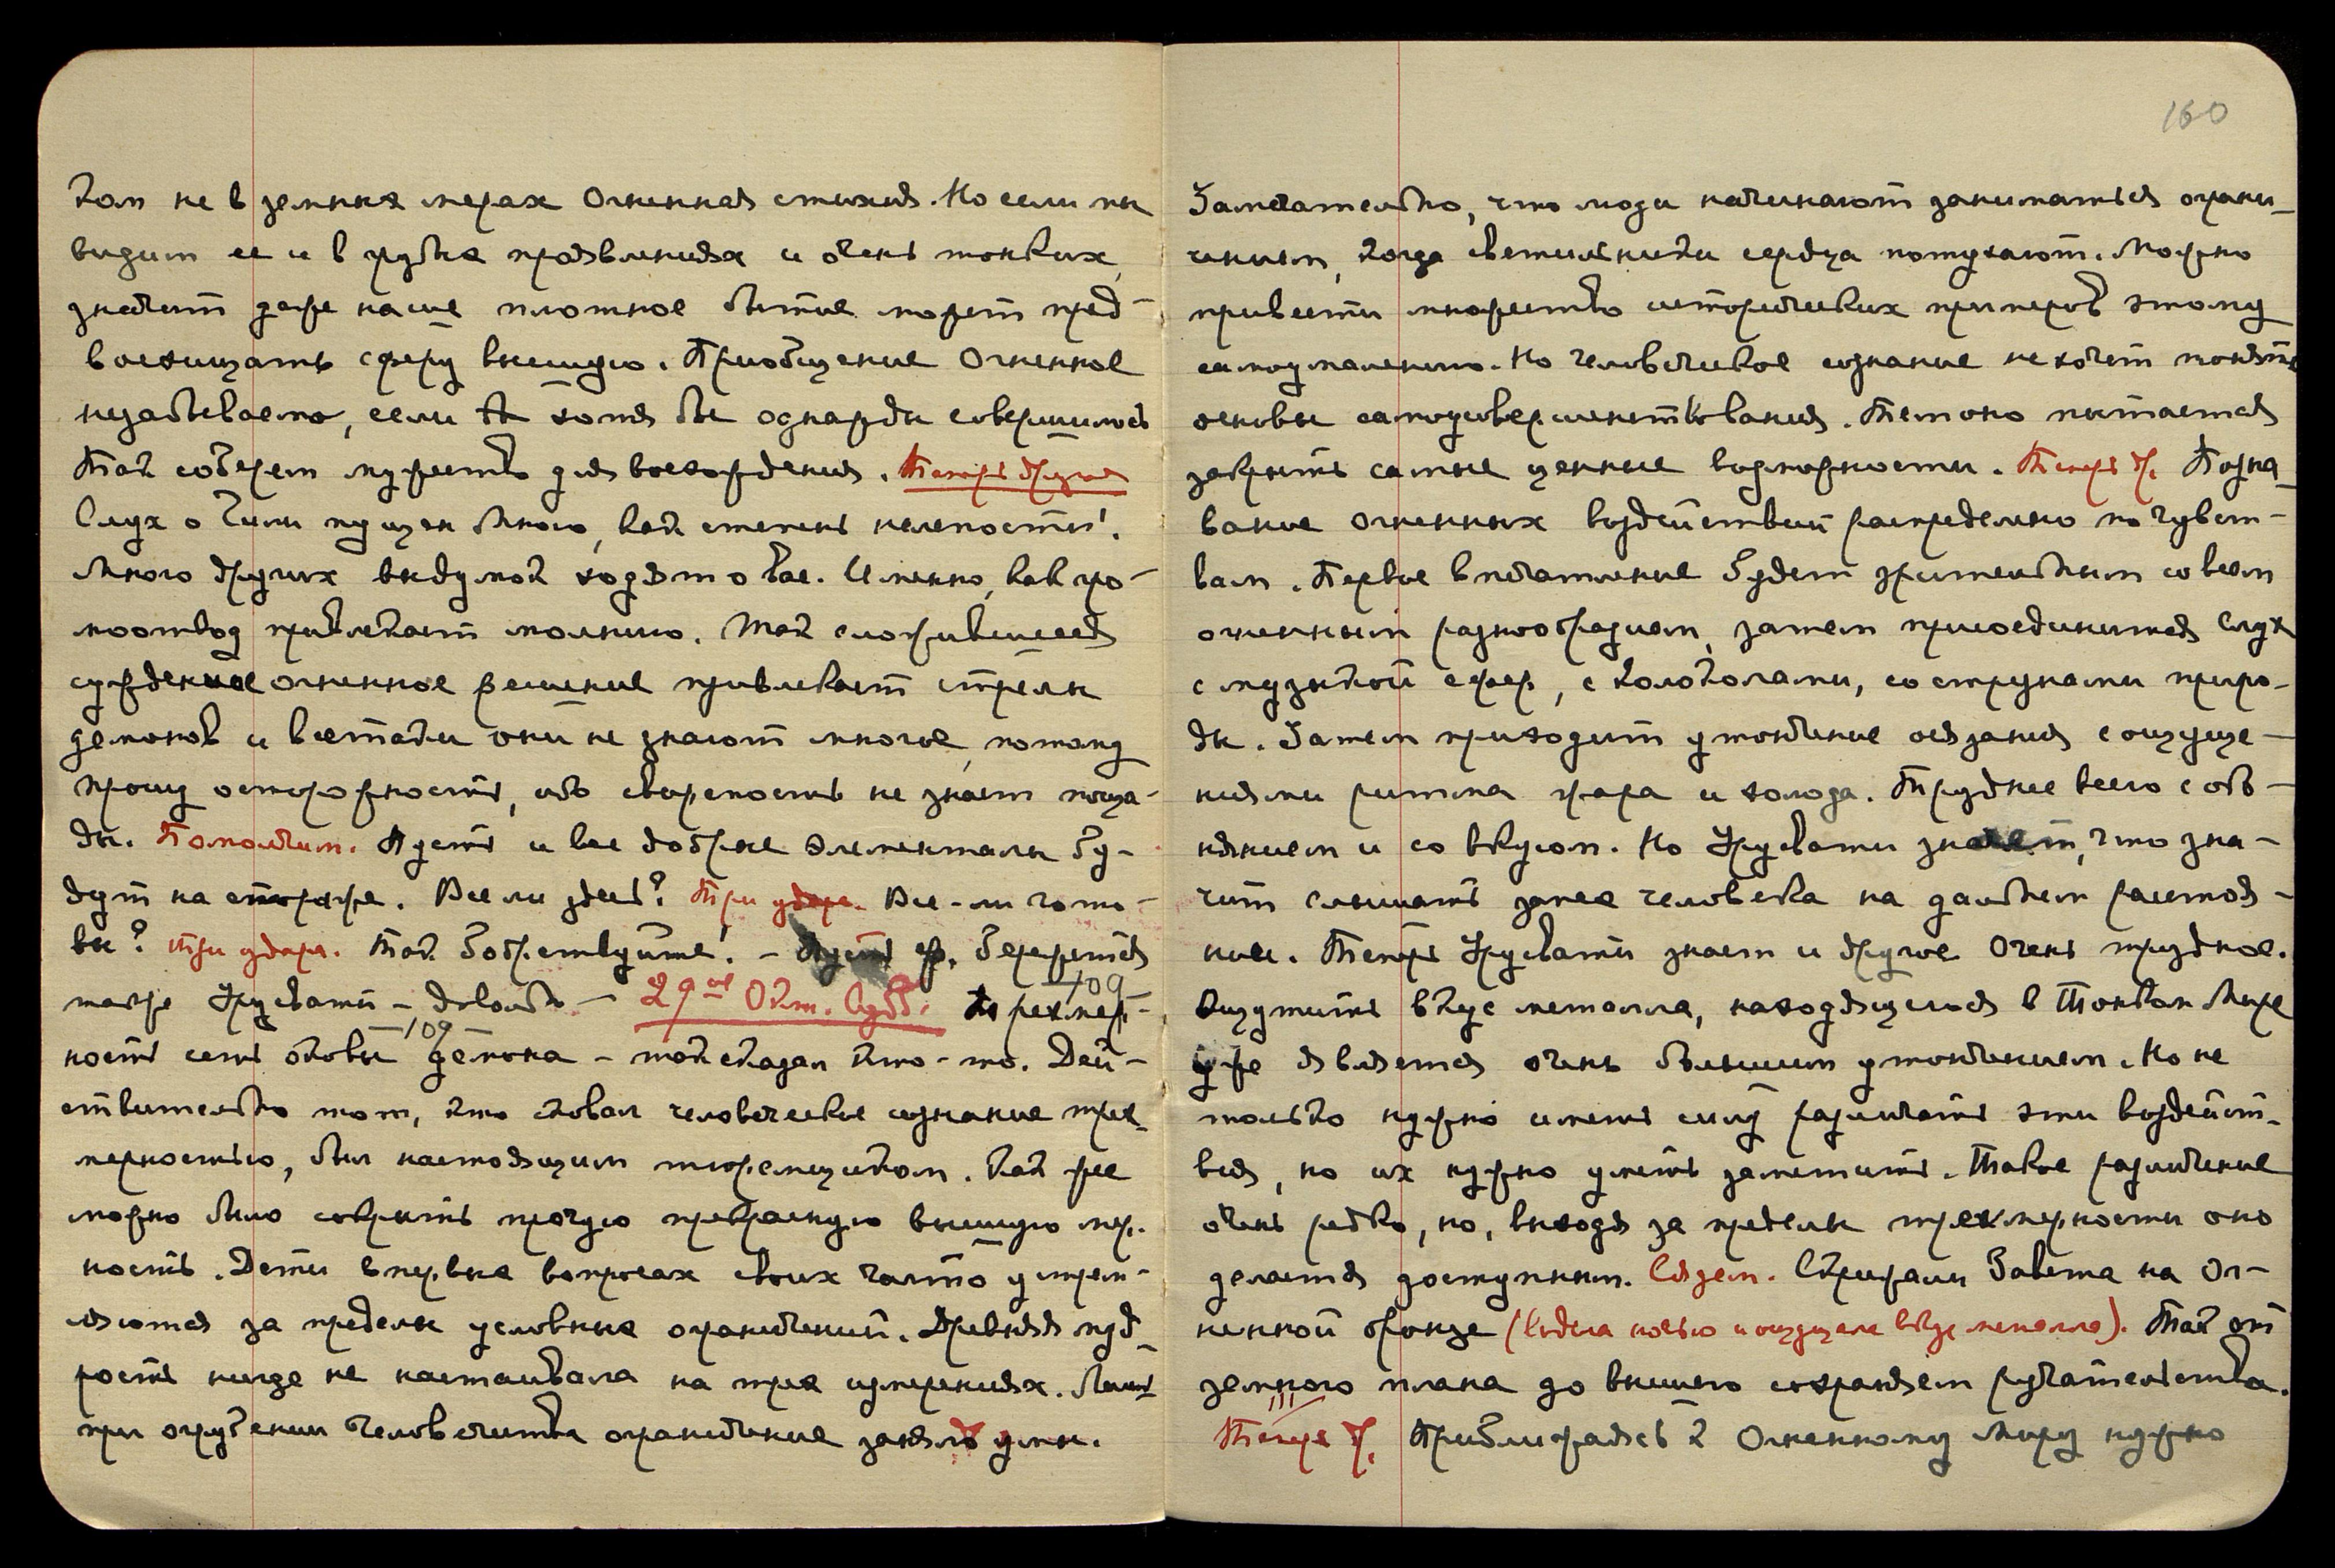 ком не в земных мерах Огненная стихия. Но если мы
видим ее и в грубых проявлениях и очень тонких,
значит даже наше плотное бытие может пред-
восхищать сферу высшую. Приобщение Огненное
незабываемо, если хотя бы однажды совершилось
Так соберем мужество для восхождения. Теперь другое
Слух о Чили пущен Много, как степень нелепости!
Много других выдумок ходят о Вас. Именно, как гро-
моотвод привлекает молнию. Так сложившееся
суждение огненное решение привлекает стрелы
демонов и все-таки они не знают многое, потому
прошу осторожность, ибо свирепость не знает поща-
ды. Помолчим. Пусть и все добрые элементалы бу-
дут на стороже. Все ли здесь? Три удара. Все-ли гото-
вы? Три удара. Так Бодрствуйте! - Пусть ф. бережется
также Урусвати - довольно - 29ое Окт. Субб. Трехмер-
109
ность есть оковы демона - так сказал кто-то. Дей-
109
ствительно тот, кто сковал человеческое сознание трех-
мерностью, был настоящим тюремщиком. Как же
можно было сокрыть прочую прекрасную высшую мер-
ность. Дети в первых вопросах своих часто устрем-
ляются за пределы условных ограничений. Древняя муд-
рость нигде не настаивала на трех измерениях. Лишь
при огрубении человечества ограничение заняло умы.
160
Замечательно, что люди начинают заниматься ограни-
чением, когда светильники сердца потухают. Можно
привести множество исторических примеров этому
самоумалению. Но человеческое сознание не хочет понять
основы самоусовершенствования. Тем оно пытается
закрыть самые ценные возможности. Теперь др. Позна-
вание огненных воздействий распределено по чувст-
вам. Первое впечатление будет зрительным со всем
огненным разнообразием, затем присоединится слух
с музыкой сфер, с колоколами, со струнами приро-
ды. Затем приходит утончение осязания с ощуще-
ниями ритма жара и холода. Труднее всего с обо-
нянием и со вкусом. Но Урусвати знает, что зна-
чит слышать запах человека на дальнем расстоя-
нии. Теперь Урусвати знает и другое Очень трудное.
Ощутить вкус металла, находящегося в Тонком Мире
уже является очень большим утончением. Но не
только нужно иметь силу различать эти воздейст-
вия, но их нужно уметь заметить. Такое различение
очень редко, но, выходя за пределы трехмерности оно
делается доступным. Сядем. Скрижали Завета на Ог-
ненной бронзе (видела ночью и ощущала вкус металла). Так от
земного плана до высшего сохраняем ручательства.
Теперь др. Приближаясь к Огненному Миру нужно